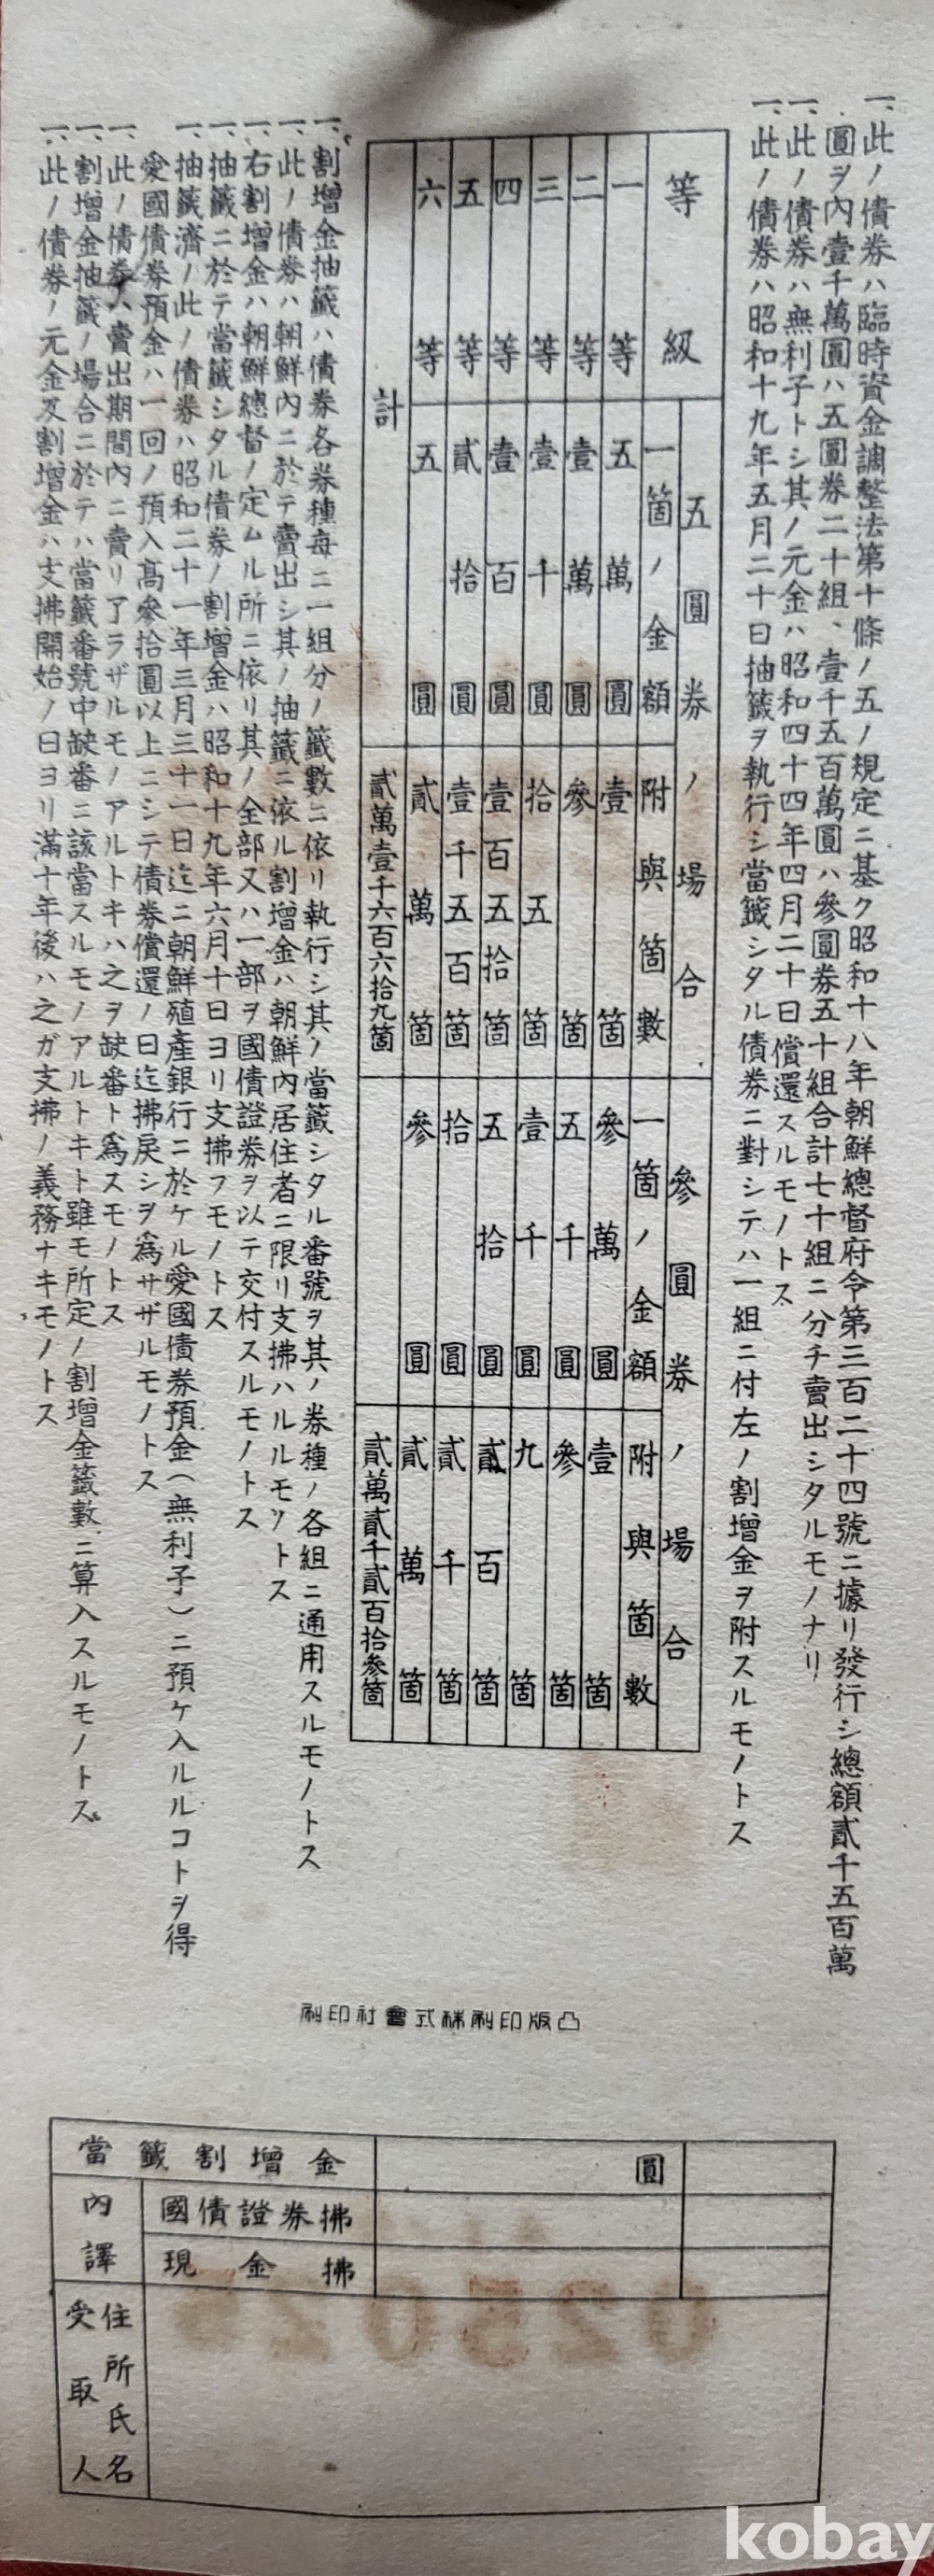 一、此ノ債券ハ臨時資金調整法第十條ノ五ノ規定ニ基ク昭和十八年朝鮮總督府令第三百二十四號ニ據リ發行シ總額貳千五百萬
圓ヲ內壹千萬圓ハ五圓券二十組、壹千五百萬圓ハ參圓券五十組合計七十組ニ分チ賣出シタルモノナリ
一、此ノ債券ハ無利子トシ其ノ元金ハ昭和四十四年四月二十日償還スルモノトス
一、此ノ債券ハ昭和十九年五月二十日抽籤ヲ執行シ當籤シタル債券ニ對シテハ一組ニ付左ノ割增金ヲ附スルモノトス
等級 五圓券ノ場合 參圓券ノ場合
一箇ノ金額 附與箇數 一箇ノ金額 附與箇數
一等 五萬圓 壹箇 參萬圓 壹箇
二等 壹萬圓 參箇 五千圓 參箇
三等 壹千圓 拾五箇 壹千圓 九箇
四等 壹百圓 壹百五拾箇 五拾圓 貳百箇
五等 貳拾圓 壹千五百箇 拾圓 貳千箇
六等 五圓 貳萬箇 參圓 貳萬箇
計 貳萬壹千六百六拾九箇 貳萬貳千貳百拾參箇
一、割增金抽籤ハ債券各券種每ニ一組分ノ籤數ニ依リ執行シ其ノ當籤シタル番號ヲ其ノ券種ノ各組ニ通用スルモノトス
一、此ノ債券ハ朝鮮內ニ於テ賣出シ其ノ抽籤ニ依ル割增金ハ朝鮮內居住者ニ限リ支拂ハルルモノトス
一、右割增金ハ朝鮮總督ノ定ムル所ニ依リ其ノ全部又ハ一部ヲ國債證券ヲ以テ交付スルモノトス
一、抽籤ニ於テ當籤シタル債券ノ割增金ハ昭和十九年六月十日ヨリ支拂フモノトス
一、抽籤濟ノ此ノ債券ハ昭和二十一年三月三十一日迄ニ朝鮮殖產銀行ニ於ケル愛國債券預金(無利子)ニ預ケ入ルルコトヲ得
愛國債券預金ハ一回ノ預入高參拾圓以上ニシテ債券償還ノ日迄拂戾シヲ爲サザルモノトス
一、此ノ債券ハ賣出期間內ニ賣リ了ラザルモノアルトキハ之ヲ缺番ト爲スモノトス
一、割增金抽籤ノ場合ニ於テハ當籤番號中缺番ニ該當スルモノアルトキト雖モ所定ノ割增金籤數ニ算入スルモノトス
一、此ノ債券ノ元金及割增金ハ支拂開始ノ日ヨリ滿十年後ハ之ガ支拂ノ義務ナキモノトス
刷印社會式株刷印版凸
當籤割增金 圓
內譯 國債證券拂
現金拂
受取人 住所氏名
02502
kobay